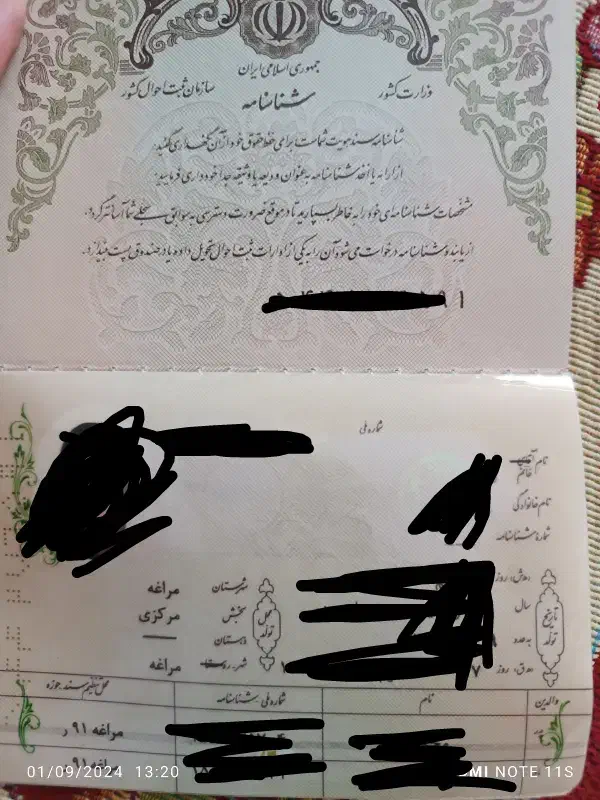 جمهوری اسلامی ایران
وزارت کشور
سازمان ثبت احوال کشور
شناسنامه
شناسنامه سند هویت شماست برای حفظ حقوق خود از آن نگهداری کنید.
از ارائه یا اخذ شناسنامه به عنوان ودیعه یا وثیقه جداً خودداری فرمایید.
مشخصات شناسنامه‌ای خود را به خاطر بسپارید تا در موقع ضرورت دسترسی به سوابق سجلی شما آسانتر گردد.
از یابنده شناسنامه درخواست می شود آن را به یکی از ادارات ثبت احوال تحویل داده یا در صندوق پست بیندازد.
شماره ملی
نام
خانم
نام خانوادگی
شماره شناسنامه
تاریخ تولد
روز
سال
محل تولد
شهرستان مراغه
بخش مرکزی
دهستان
شهر مراغه
والدین نام شماره ملی شناسنامه محل تنظیم سند حوزه
پدر مراغه ۹۱ ر
مراغه ۹۱ ر
01/09/2024 13:20 MI NOTE 11S